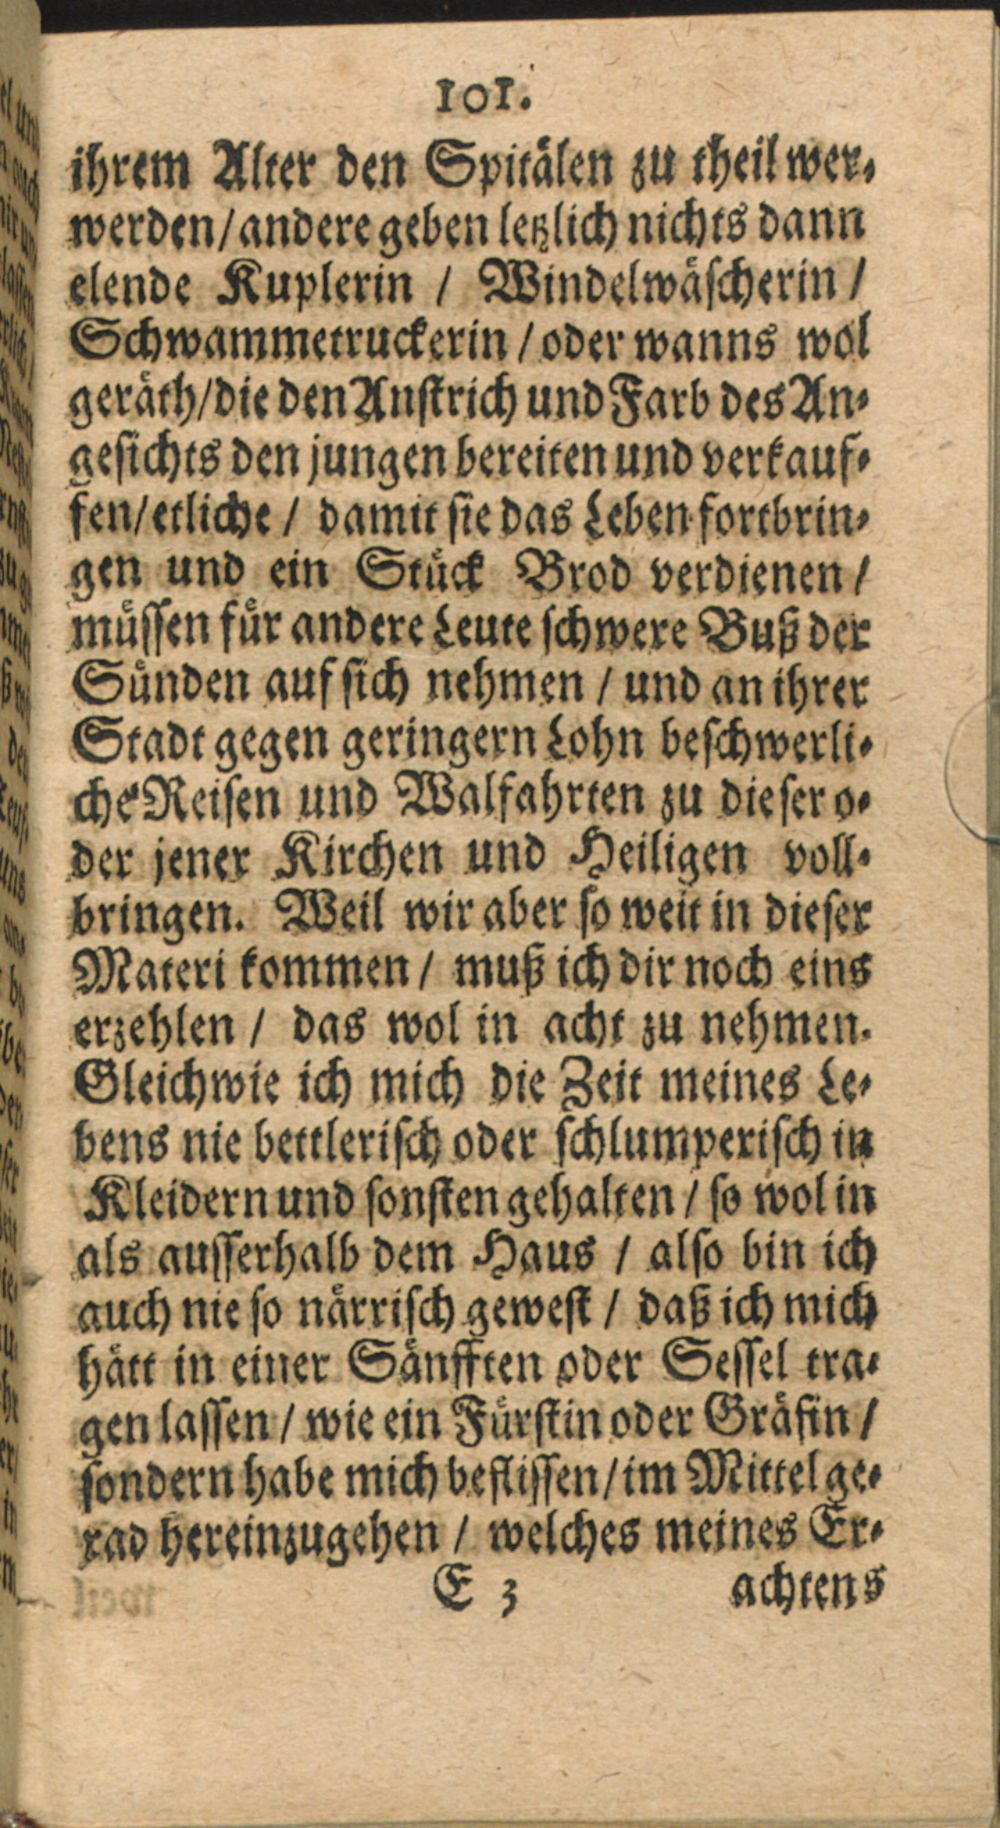 101.
ihrem Alter den Spitälen zu theil wer-
werden/andere geben letzlich nichts dann
elende Kuplerin / Windelwäscherin /
Schwammetruckerin / oder wanns wol
geräth/die den Anstrich und Farb des An-
gesichts den jungen bereiten und verkauf-
fen/etliche / damit sie das Leben fortbrin-
gen und ein Stück Brod verdienen /
müssen für andere Leute schwere Buß der
Sünden auf sich nehmen / und an ihrer
Stadt gegen geringern Lohn beschwerli-
che Reisen und Walfahrten zu dieser o-
der jener Kirchen und Heiligen voll-
bringen. Weil wir aber so weit in dieser
Materi kommen / muß ich dir noch eins
erzehlen / das wol in acht zu nehmen.
Gleichwie ich mich die Zeit meines Le-
bens nie bettlerisch oder schlumperisch in
Kleidern und sonsten gehalten / so wol in
als ausserhalb dem Haus / also bin ich
auch nie so närrisch gewest / daß ich mich
hätt in einer Sänfften oder Sessel tra-
gen lassen / wie ein Fürstin oder Gräfin /
sondern habe mich beflissen/im Mittel ge-
rad hereinzugehen / welches meines Er-
E 3 achtens